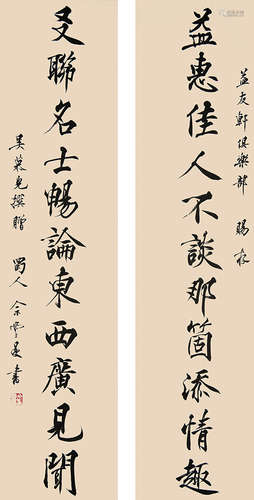 益友軒俱樂部 賜存
益惠佳人不談那箇添情趣
友聯名士暢論東西廣見聞
吳慕撰贈 蜀人余雪曼書